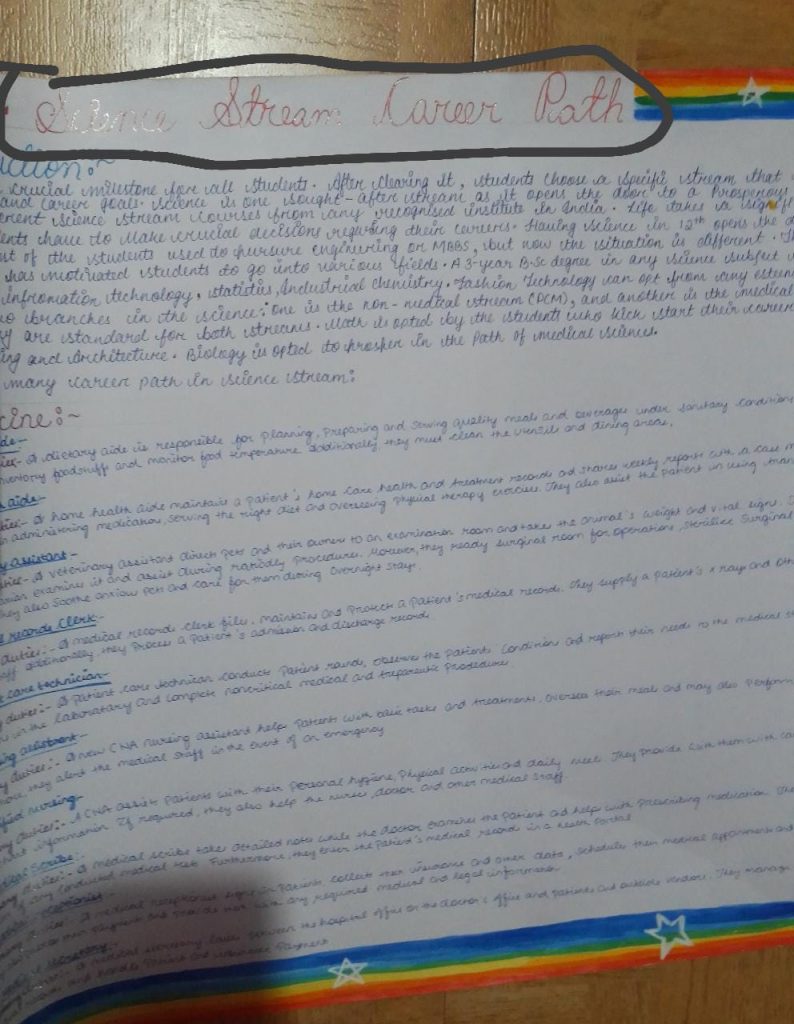 Science Stream Career Path
uction:~
crucial milestone for all students. After clearing it, students choose a specific stream that
and career goals. Science is one sought-after stream as it opens the door to a Prosperous
erent science stream courses from any recognised institute in India. Life takes a signif
ents have to make crucial decisions regarding their careers. Having science in 12th opens the d
st of the students used to pursure engineering or MBBS, but now the situation is different. Th
has motivated students to go into various fields. A 3-year B.Sc degree in any science subject
Infromation technology, statistics, Industrial chemistry. Fashion Technology can opt from any esteem
o branches in the science: one is the non-medical stream (PCM), and another is the medical
y are standard for both streams. Math is opted by the students who kick start their career
ing and Architecture. Biology is opted to prosper in the Path of medical sciences.
many career path in science stream:
cine:~
de-
ies- A dietary aide is responsible for Planning, Preparing and Serving quality meals and beverages under sanitary conditions
nventory foodstuff and monitor food temperature additionally, they must clean the utensils and dining areas.
aide-
ties:- A home health aide maintains a patient's home care health and treatment records and shares weekly reports with a case m
in administering medication, serving the right diet and overseeing Physical therapy exercises. They also assist the Patient in using tran
y assistant-
ties- A veterinary assistant direct pets and their owners to an examination room and takes the animal's weight and vital signs.
arian examines it and assist during rapidly procedures. Moreover, they ready surgical room for operations, sterilise Surgical
They also soothe anxious pets and care for them during overnight stays.
l records Clerk-
duties:- A medical records clerk files, maintain and Protects a Patient's medical records. They supply a patient's x rays and oth
aff additionally, they Process a Patient's admission and discharge records.
t care technician-
duties:- A Patient care technican conducts Patient rounds, observes the Patients condition and report their needs to the medical s
in the laboratary and complete noncritical medical and therapeutic Procedures.
ing assistant-
y duties:- A new CNA nursing assistant helps Patients with basic tasks and treatments, oversees their meal and may also Perform
they alert the medical staff in the event of an emergency
fied nursing-
ry duties:- A CNA assists Patients with their Personal hygiene, Physical activities and daily meal. They Provide
information If required, they also help the nurses, doctor and other medical staff
Scribe-
duties:- A medical scribe takes detailed notes while the doctor examines the Patient and help with Prescribing medication. The
of any conducted medical tests. Furthermore, they enter the Patient's medical records in a health Portal
duties: A medical receptionist signs in Patients, collects their insurance and other data, schedules their medical appointments and
any required medical and legal information
Secretary-
A medical secretary between the hospital office or the doctor's office and Patients and outside vendors. They manage
and handles Patient and insurance Payment